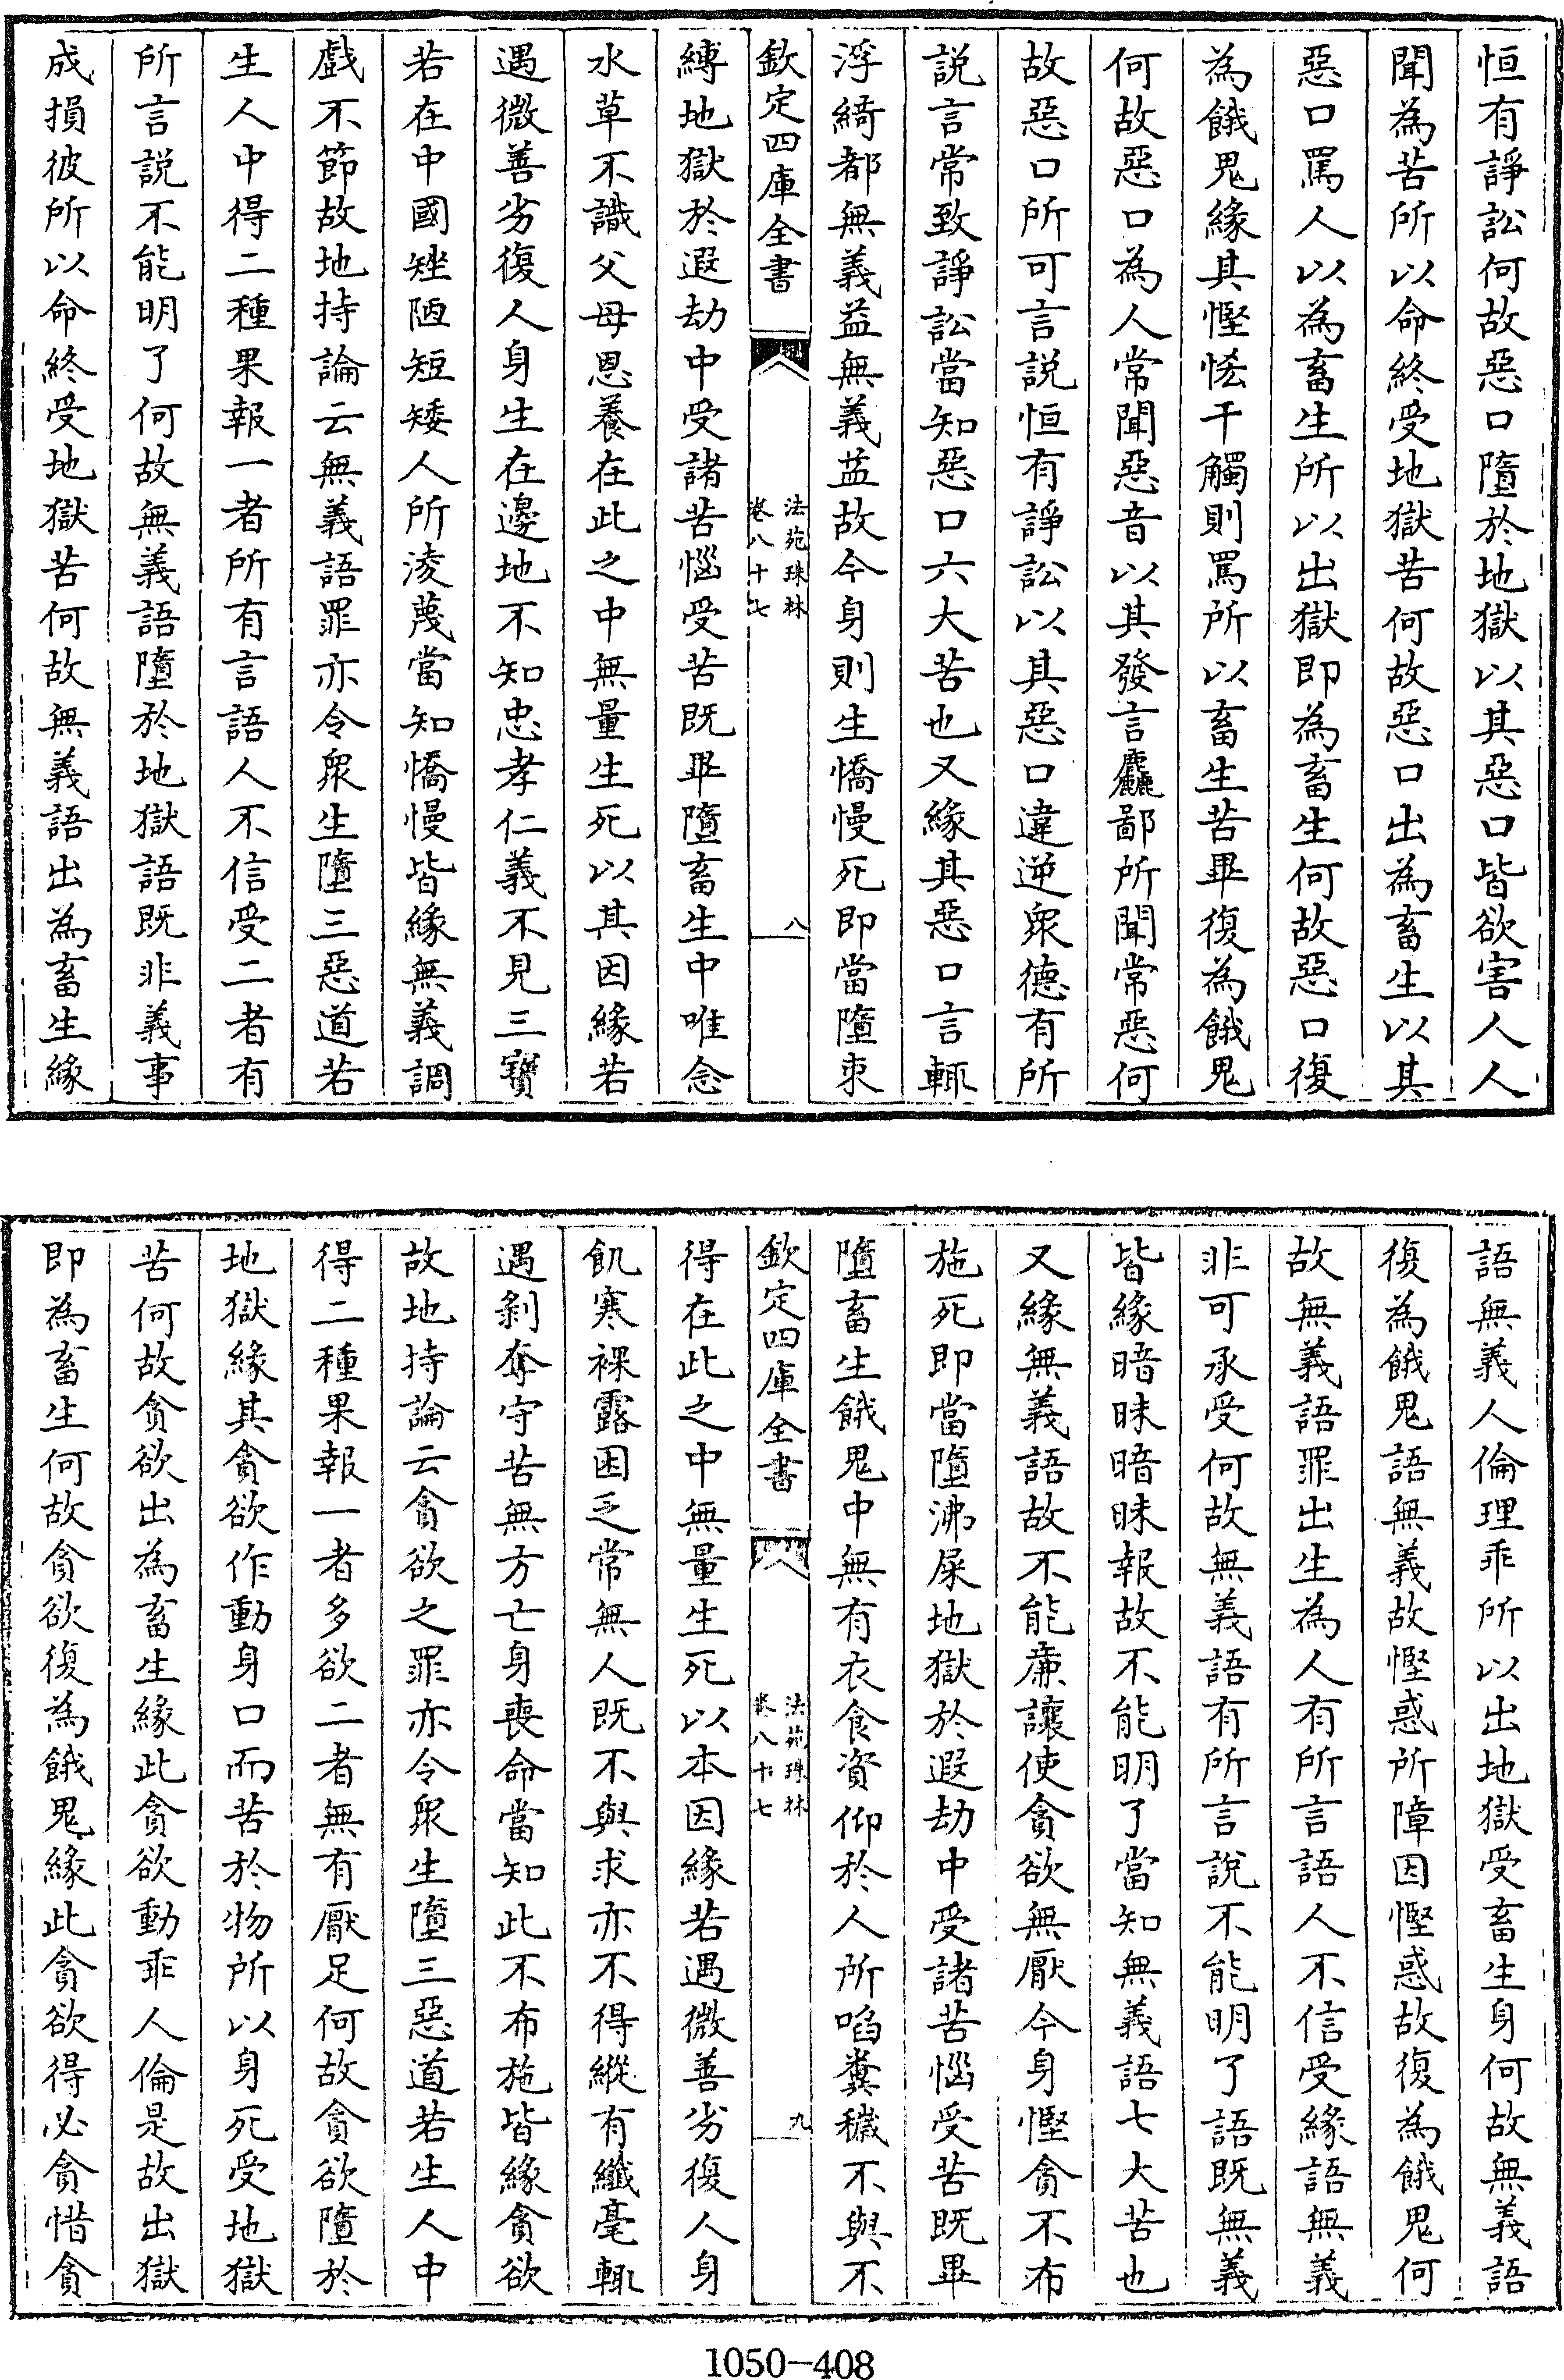 恒有諍訟何故惡口墮於地獄以其惡口皆欲害人人
聞為苦所以命終受地獄苦何故惡口出為畜生以其
惡口罵人以為畜生所以出獄即為畜生何故惡口復
為餓鬼緣其慳悋干觸則罵所以畜生苦畢復為餓鬼
何故惡口為人常聞惡音以其發言麤鄙所聞常惡何
故惡口所可言説恒有諍訟以其惡口違逆衆德有所
説言常致諍訟當知惡口六大苦也又緣其惡口言輒
浮綺都無義益無義益故今身則生憍慢死即當墮束
欽定四庫全書
法苑珠林
卷八十七
八
縛地獄於遐劫中受諸苦惱受苦既畢墮畜生中唯念
水草不識父母恩養在此之中無量生死以其因緣若
遇微善劣復人身生在邊地不知忠孝仁義不見三寶
若在中國矬陋短矮人所淩蔑當知憍慢皆緣無義調
戲不節故地持論云無義語罪亦令衆生墮三惡道若
生人中得二種果報一者所有言語人不信受二者有
所言説不能明了何故無義語墮於地獄語既非義事
成損彼所以命終受地獄苦何故無義語出為畜生緣
語無義人倫理乖所以出地獄受畜生身何故無義語
復為餓鬼語無義故慳惑所障因慳惑故復為餓鬼何
故無義語罪出生為人有所言語人不信受緣語無義
非可承受何故無義語有所言說不能明了語既無義
皆緣暗昧暗昧報故不能明了當知無義語七大苦也
又緣無義語故不能廉讓使貪欲無厭今身慳貪不布
施死即當墮沸屎地獄於遐劫中受諸苦惱受苦既畢
墮畜生餓鬼中無有衣食資仰於人所啗糞穢不與不
欽定四庫全書
法苑珠林
卷八十七
九
得在此之中無量生死以本因緣若遇微善劣復人身
飢寒裸露困乏常無人既不與求亦不得縱有纖毫輒
遇剝奪守苦無方亡身喪命當知此不布施皆緣貪欲
故地持論云貪欲之罪亦令衆生墮三惡道若生人中
得二種果報一者多欲二者無有厭足何故貪欲墮於
地獄緣其貪欲作動身口而苦於物所以身死受地獄
苦何故貪欲出為畜生緣此貪欲動乖人倫是故出獄
即為畜生何故貪欲復為餓鬼緣此貪欲得必貪惜貪
1050-408